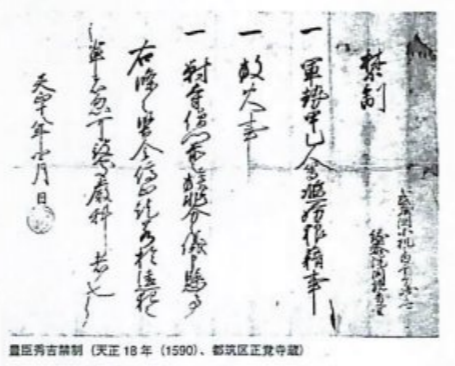 禁制
一 軍勢甲乙人等濫妨狼藉事
一 放火事
一 對寺僧門前 非分之儀申懸事
右條々堅令停止訖若於違犯
輩者忽可被處厳科者也
天正十八年 月日
豊臣秀吉禁制（天正18年（1590）、都筑区正覚寺蔵）